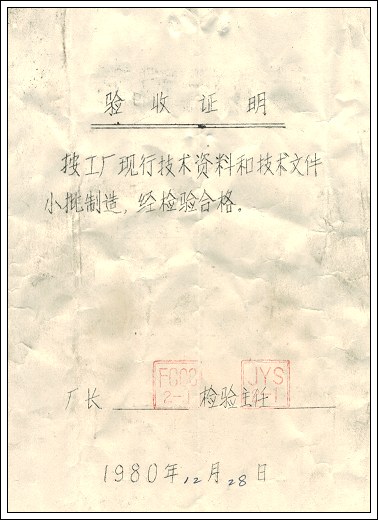 验收证明
按工厂现行技术资料和技术文件
小批制造，经检验合格。
厂长 检验主任
JYS
1980年12月28日